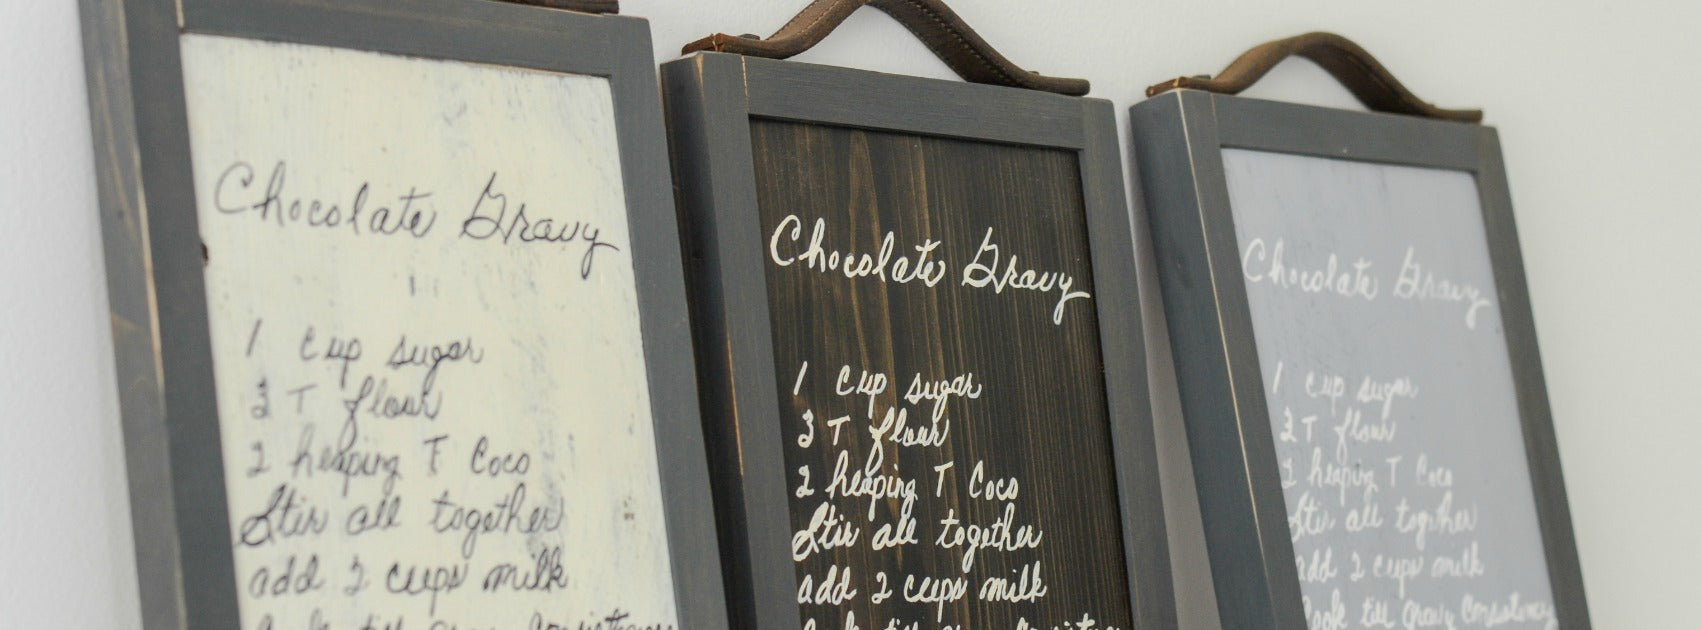 Chocolate Gravy
1 cup sugar
3 T flour
2 heaping T Coco
Stir all together
add 2 cups milk
Cook till gravy Consistency
Chocolate Gravy
1 cup sugar
3 T flour
2 heaping T Coco
Stir all together
add 2 cups milk
Cook till gravy Consistency
Chocolate Gravy
1 cup sugar
3 T flour
2 heaping T Coco
Stir all together
add 2 cups milk
Cook till gravy Consistency